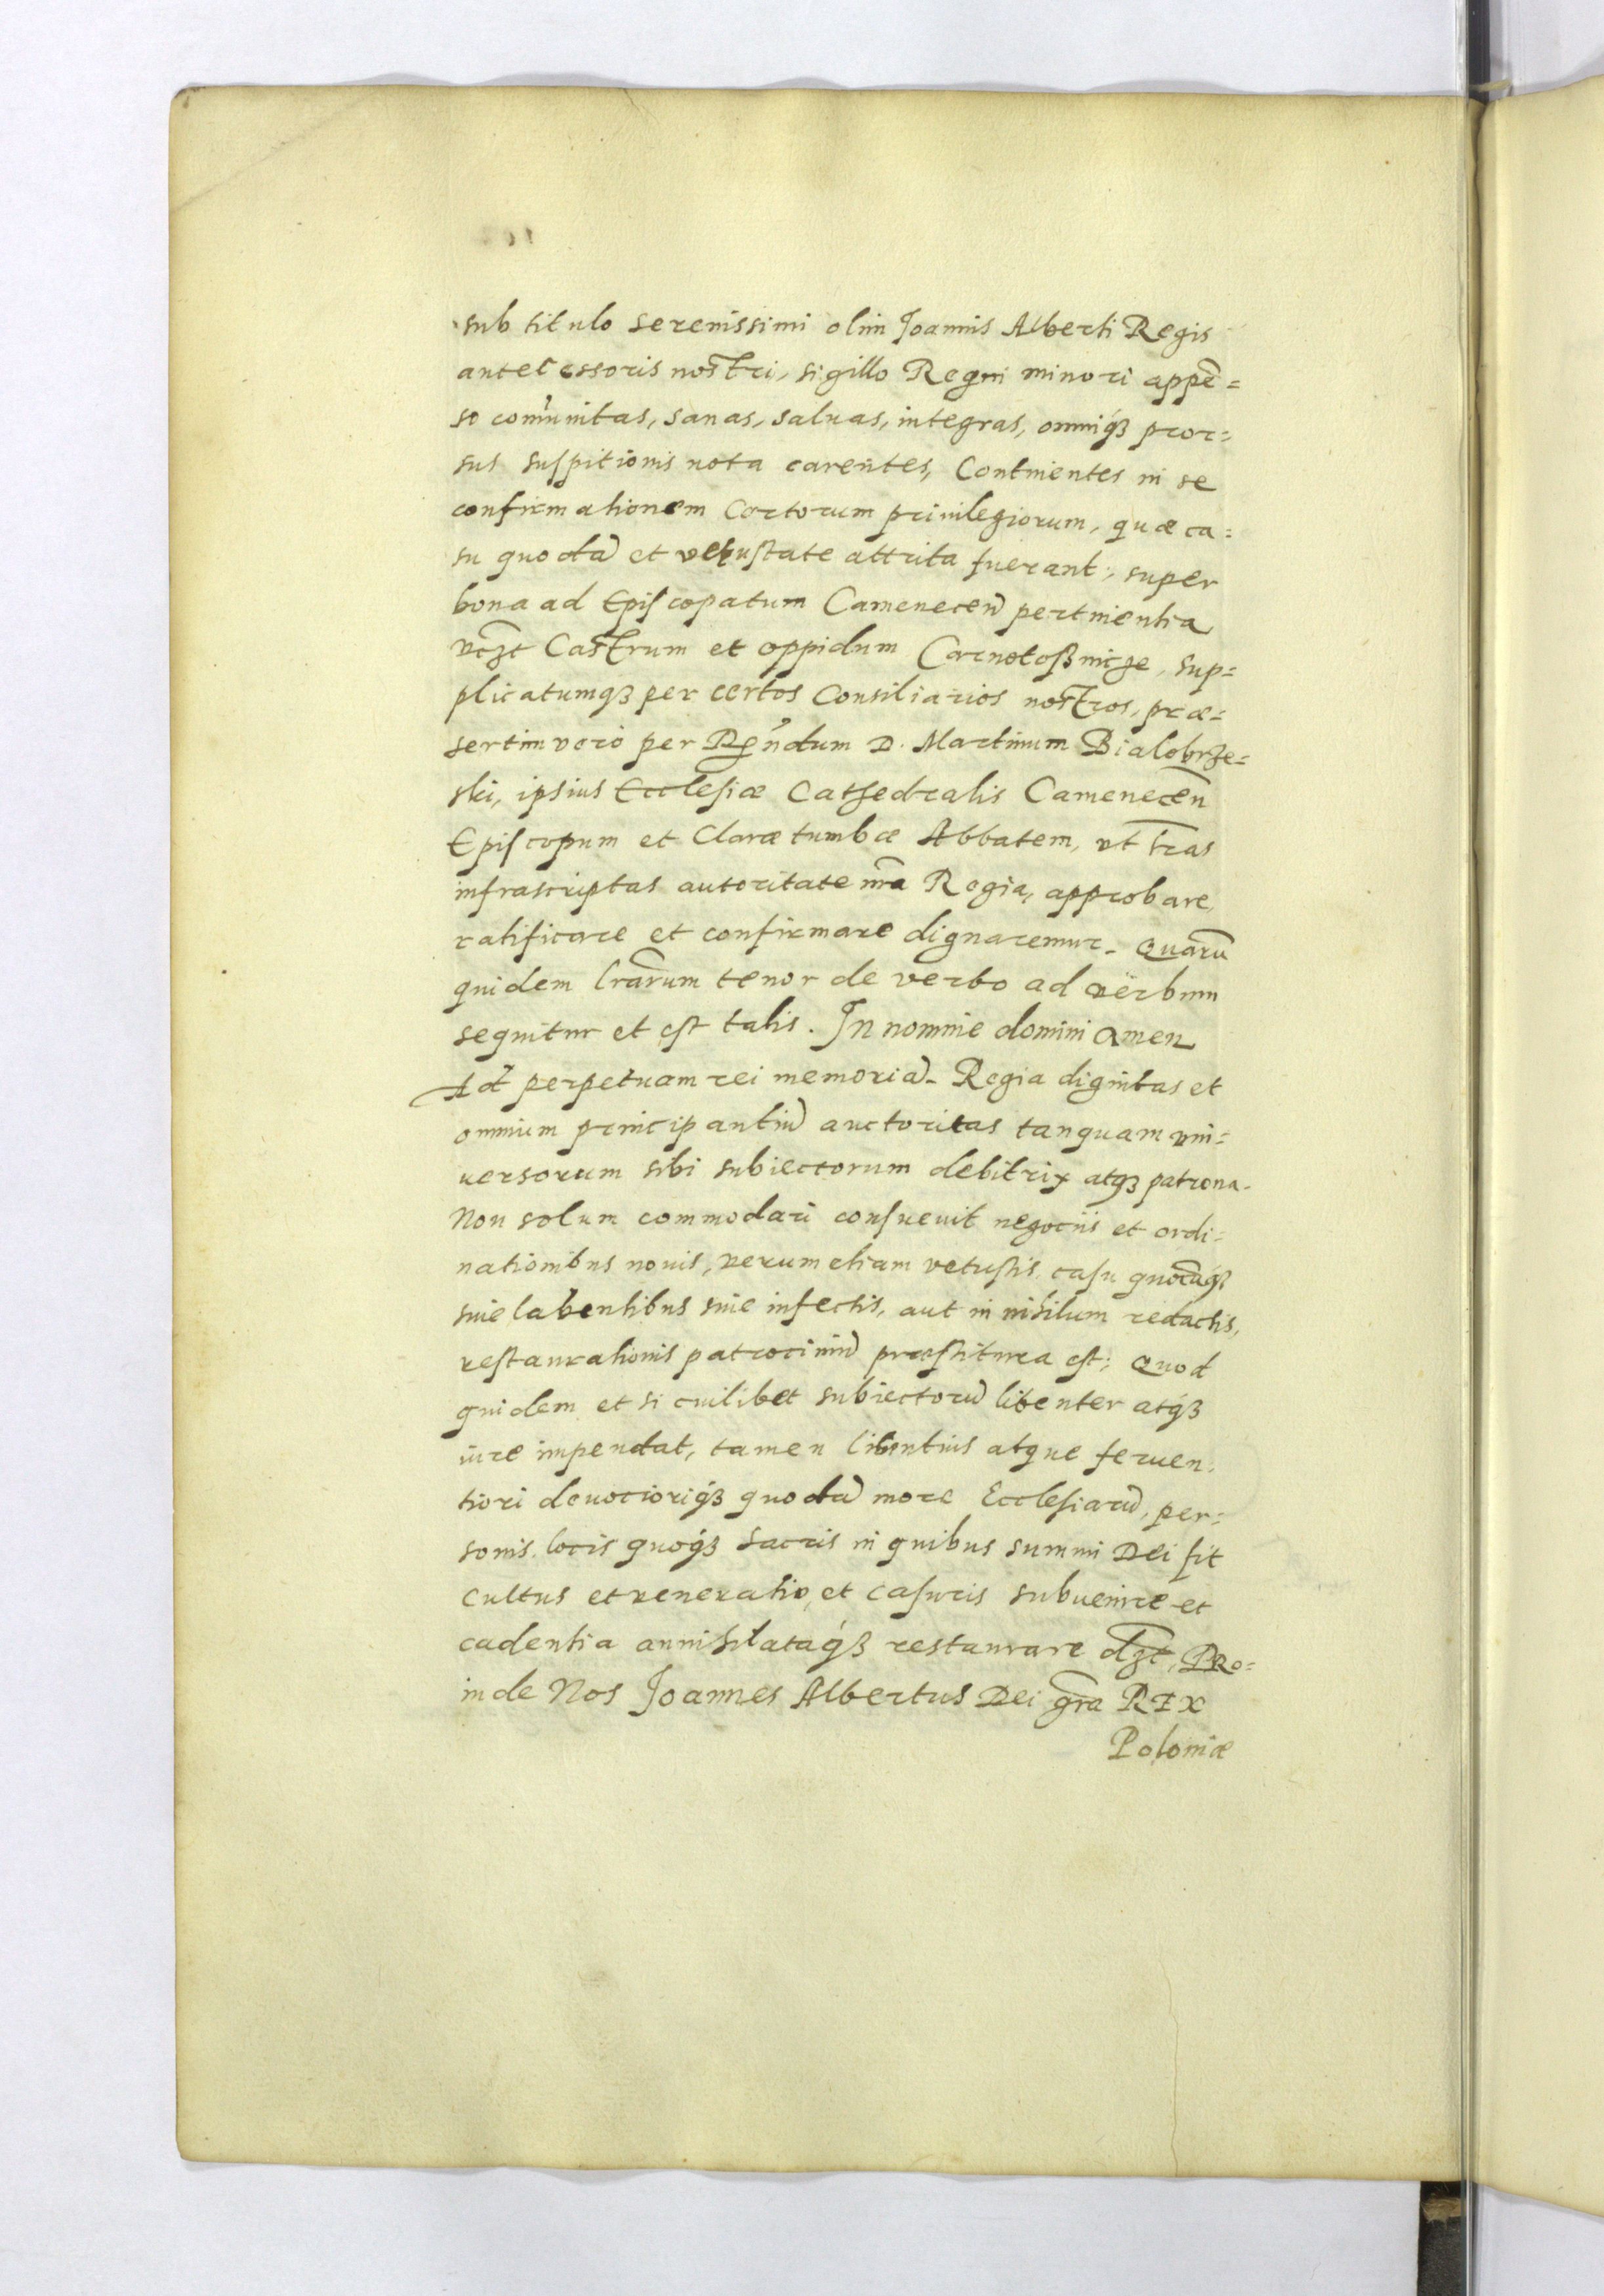 sub titulo serenissimi olim Joannis Alberti Regis
antecessoris nostri, sigillo Regni minori appē=
so com̃unitas, sanas, saluas, integras, omniq́ꝫ pror=
sus suspitionis nota carentes, Continentes in se
confirmationem Certorum priuilegiorum, quæ ca=
su quodã et vetustate attrita fuerant, super
bona ad Episcopatum Camenecen̄ pertinentia
vcꝫt Castrum et oppidum Czarnokoßincze, sup=
plicatumqꝫ per certos Consiliarios nostros, præ=
sertim vero per Rẽndum D. Martinum Bialobrze=
ski, ipsius Ecclesiæ Cathedralis Camenecen̄
Episcopum et Claræ tumbæ Abbatem, vt l̄ras
infrascriptas autoritate nr̄a Regia, approbare,
ratificare et confirmare dignaremur. Quarū
quidem lrārum tenor de verbo ad verbum
sequitur et est talis. In nomine domini amen
Ad perpetuam rei memoriã. Regia dignitas et
omnium principantiũ auctoritas tanquam vni=
uersorum sibi subiectorum debitrix atqꝫ patrona.
Non solum commodari consueuit negociis et ordi=
nationibus nouis, verum etiam vetustis casu quocūq́ꝫ
siue labentibus siue infectis, aut in nihilum redactis,
restaurationis patrociniũ præstitura est; Quod
quidem et si cuilibet subiectorũ libenter atq́ꝫ
iure impendat, tamen libentius atque feruen=
tiori deuocioriq́ꝫ quodã more Ecclesiarũ, per=
sonis, locis quoq́ꝫ sacris in quibus summi Dei fit
cultus et veneratio, et casuris subuenire et
cadentia annihilataq́ꝫ restaurare dꝫt, Pro=
inde Nos Joannes Albertus Dei gr̄a REX
Poloniæ